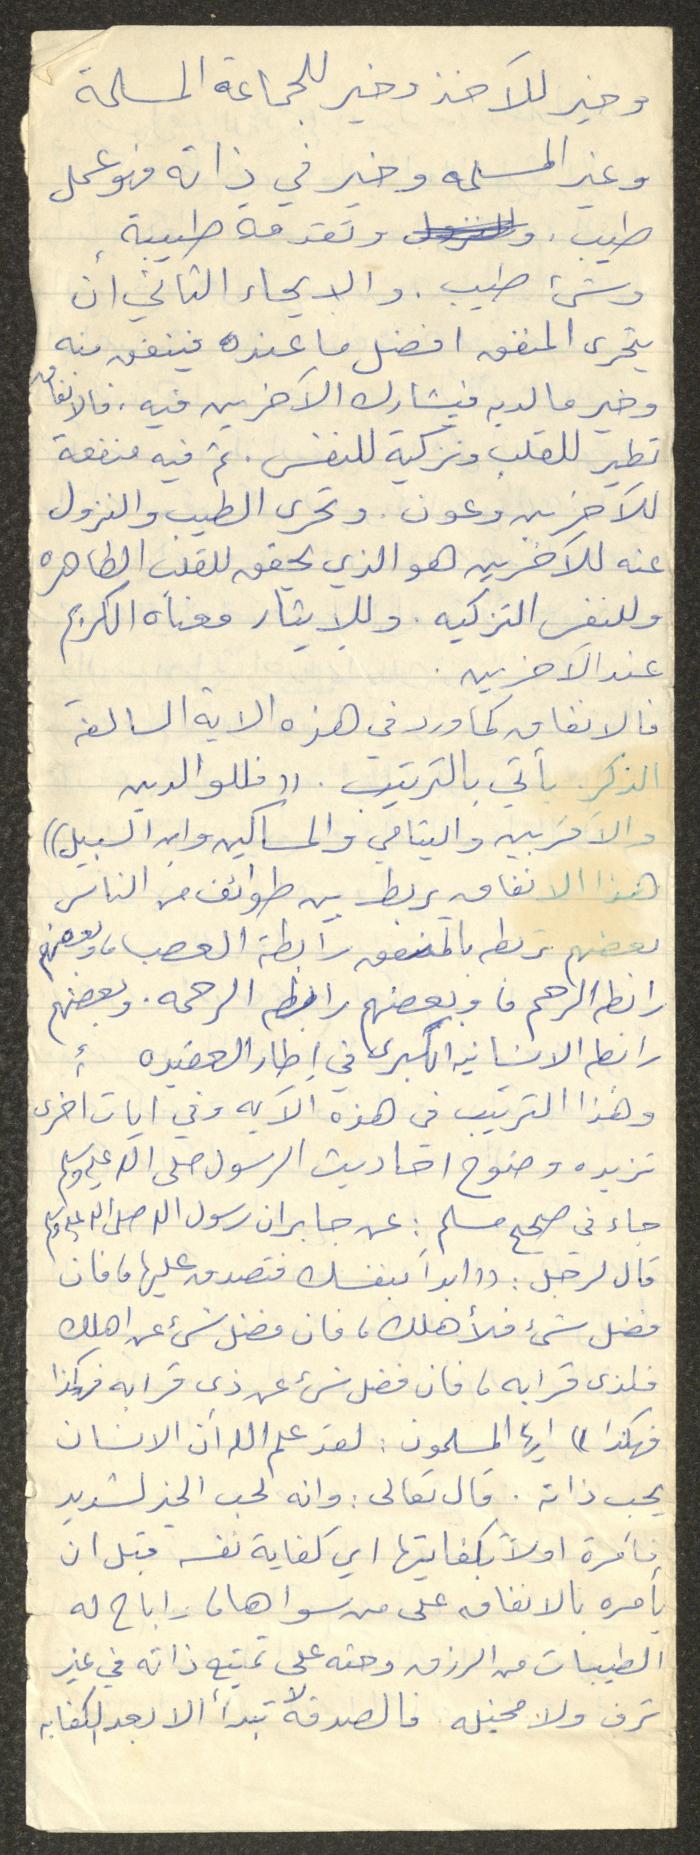 وخير للآخذ وخير للجماعة المسلمة
وغير المسلمه وخير في ذاته فهو عمل
طيب. وتقدمة طيبة
وشئ طيب. والايحاء الثاني أن
يتحرى المنفق افضل ما عنده فينفق منه
وخير ما لديه فيشارك الآخرين فيه. فالانفاق
تطهير للقلب وتزكية للنفس. ثم فيه منفعة
للآخرين وعون. وتحرى الطيب والنزول
عنه للآخرين هو الذي يحقق للقلب الطاهره
وللنفس التزكيه. وللإيثار معناه الكريم
عند الآخرين.
فالانفاق كما ورد في هذه الاية السالفة
الذكر يأتي بالترتيب. ((فللوالدين
والأقربين واليتامي والمساكين وابن السبيل))
هذا الانفاق يربط بين طوائف من الناس
بعضهم تربطه بالمنفق رابطة العصب، وبعضهم
رابطه الرحم، وبعضهم رابطه الرحمه. وبعضهم
رابطه الانسانيه الكبرى في إطار العقيده
وهذا الترتيب في هذه الآيه وفي ايات اخرى
تزيده وضوح احاديث الرسول صلى الله عليه وسلم
جاء في صحيح مسلم: عن جابر ان رسول الله صلى الله عليه وسلم
قال لرجل: ((ابدأ بنفسك فتصدق عليها، فان
فضل شئ فلأهلك، فان فضل شئ عن اهلك
فلذى قرابه، فان فضل شئ عن ذى قرابه فهكذا
فهكذا)) ايها المسلمون: لقد علم الله أن الانسان
يحب ذاته. قال تعالى: وانه لحب الخير لشديد
فأمرة اولاً بكفايتها اي كفاية نفسه قبل ان
يأمره بالانفاق على من سواها، واباح له
الطيبات من الرزق وحثه على تمتيع ذاته في غير
ترف ولا مخيله. فالصدقة لا تبدأ الا بعد الكفايه